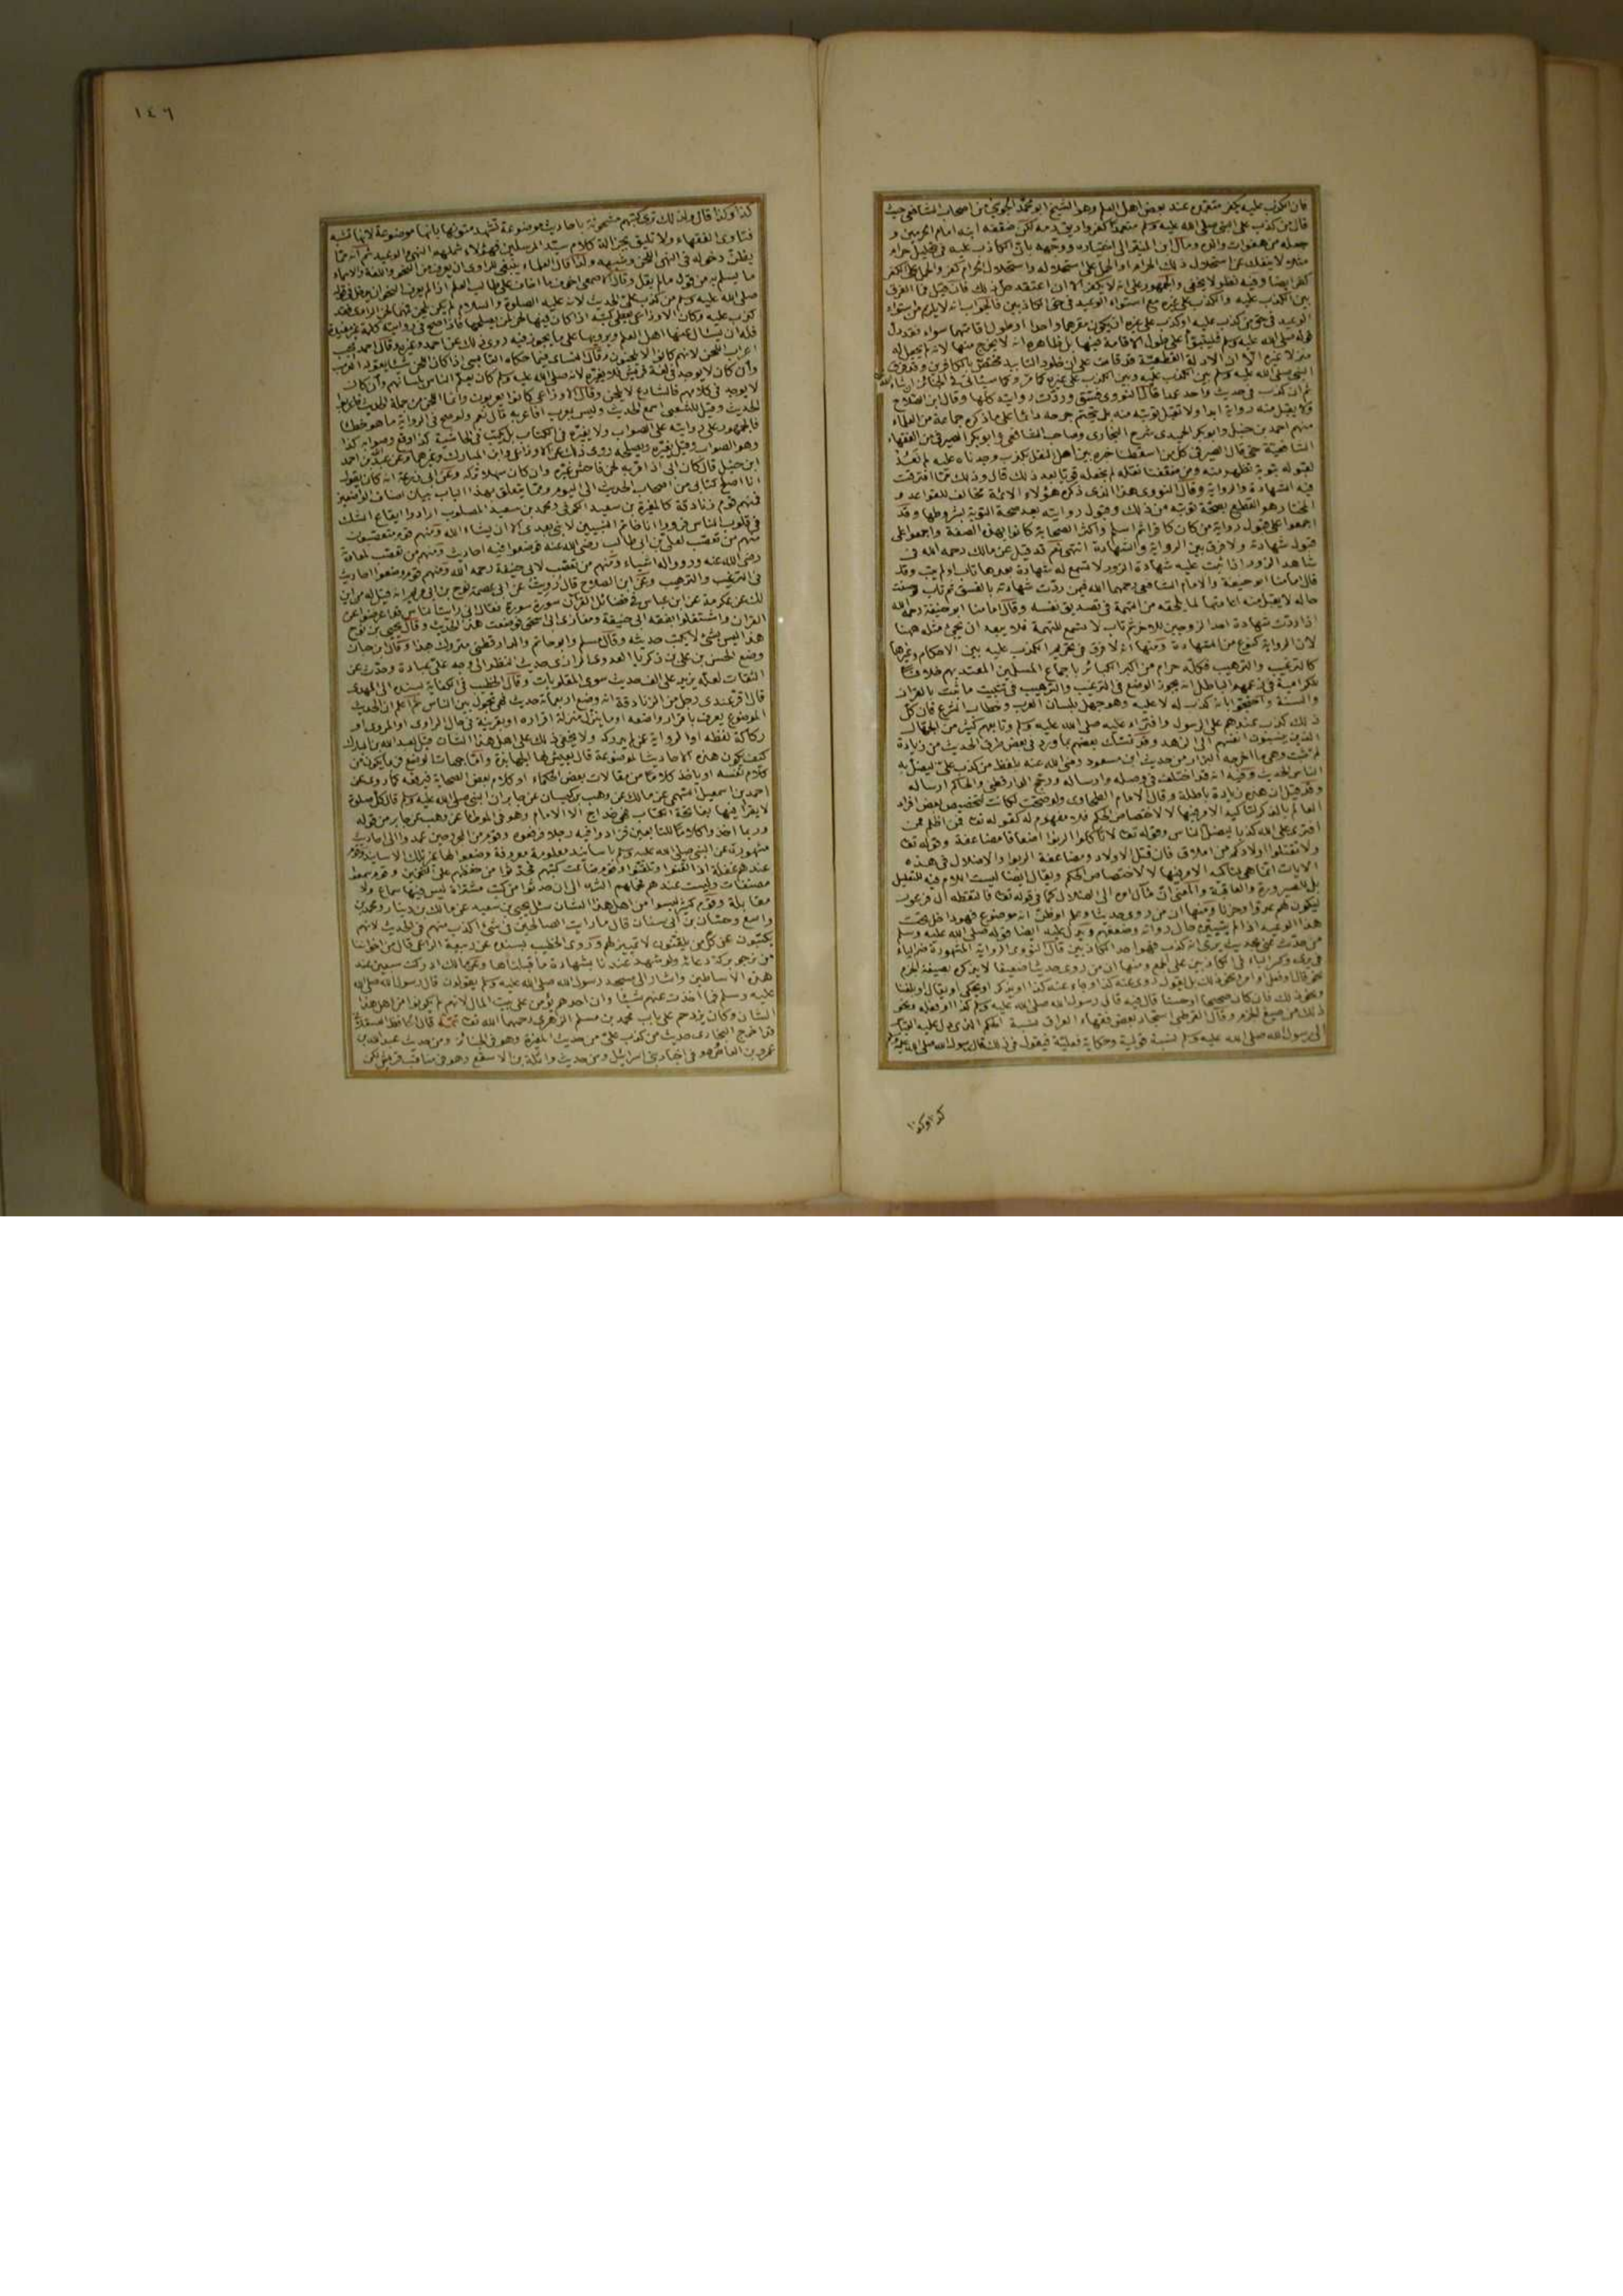 فان الكذب عليه يكفر متعمده عند بعض اهل العلم وهو الشيخ ابو محمد الجويني من اصحاب الشافعي حيث
قال من كذب على النبي صلى الله عليه وسلم متعمدا كفر واريق دمه لكن ضعفه ابنه امام الحرمين و
جعله من هفوات والده ومال ابن المنير الى اختياره ووجهه بان الكاذب عليه في تحليل حرام
مثلا لا ينفك عن استحلال ذلك الحرام او الحمل على استحلاله واستحلال الحرام كفر والحمل على الكفر
كفر ايضا وفيه نظر لا يخفى والجمهور على انه لا يكفر الا ان اعتقد حل ذلك فان قيل فما الفرق
بين الكذب عليه والكذب على غيره مع استواء الوعيد في حق الكاذبين فالجواب انه لا يلزم من استواء
الوعيد في حق من كذب عليه او كذب على غيره ان يكون مقرهما واحدا او طول اقامتهما سواء فقد دل
قوله صلى الله عليه وسلم فليتبوأ على طول الاقامة فيها بل ظاهره انه لا يخرج منها لانه لم يجعل له
منزلا غيره الا ان الادلة القطعية قد قامت على ان خلود التابيد مختص بالكافرين وقد فرق
النبي صلى الله عليه وسلم بين الكذب عليه وبين الكذب على غيره كما مر وكما سيأتي في الجنائز ان شاء الله
ثم ان كذب في حديث واحد عمدا قال النووي فسق وردت رواياته كلها وقال ابن الصلاح
ولا يقبل منه رواية ابدا ولا تقبل توبته منه بل يتحتم جرحه دائما على ما ذكره جماعة من العلماء
منهم احمد بن حنبل وابو بكر الحميدي شيخ البخاري وصاحب الشافعي وابو بكر الصيرفي من الفقهاء
الشافعية حتى قال الصيرفي كل من اسقطنا خبره بين اهل النقل بكذب وجدناه عليه لم نعد
لقبوله بتوبة تظهر منه ومن ضعفنا نقله لم نجعله قويا بعد ذلك قال وذلك مما افترقت
فيه الشهادة والرواية وقال النووي هذا الذي ذكره هؤلاء الائمة مخالف للقواعد و
المختار هو القطع بصحة توبته من ذلك وقبول روايته بعد صحة التوبة بشروطها وقد
اجمعوا على قبول رواية من كان كافرا ثم اسلم واكثر الصحابة كانوا بهذه الصفة واجمعوا على
قبول شهادته ولا فرق بين الرواية والشهادة انتهى نعم قد قيل عن مالك رحمه الله في
شاهد الزور اذا ثبت عليه شهادة الزور لا تسمع له شهادة بعدها تاب او لم يتب وقد
قال امامنا ابو حنيفة والامام الشافعي رحمهما الله فيمن ردت شهادته بالفسق ثم تاب وحسنت
حاله لا يقبل منه اعادتها لما يلحقه من التهمة في تصديق نفسه وقال امامنا ابو حنيفة رحمه الله
اذا ردت شهادة احد الزوجين للاخر ثم تاب لا تسمع للتهمة فلا يبعد ان يجيء مثله ههنا
لان الرواية كنوع من الشهادة ومنها انه لا فرق في تحريم الكذب عليه بين الاحكام وغيرها
كالترغيب والترهيب فكله حرام من اكبر الكبائر باجماع المسلمين المعتد بهم خلافا
للكرامية في زعمهم الباطل انه يجوز الوضع في الترغيب والترهيب في تثبيت ما ثبت بالقران
والسنة واحتجوا بانه كذب له لا عليه وهو جهل بلسان العرب وخطاب الشرع فان كل
ذلك كذب عندهم على الرسول وافتراء عليه صلى الله عليه وسلم وتابعهم كثير من الجهال
الذين ينسبون انفسهم الى الزهد وقد تمسك بعضهم بما ورد في بعض طرق الحديث من زيادة
لم تثبت وهي ما اخرجه البزار من حديث ابن مسعود رضي الله عنه بلفظ من كذب علي ليضل به
الناس الحديث وفيه انه قد اختلف في وصله وارساله ورجح الدارقطني والحاكم ارساله
وقد قيل ان هذه زيادة باطلة وقال الامام الطحاوي ولو صحت لكانت لتخصيص بعض افراد
العالم بالذكر لتاكيد الامر فيها لا لاختصاص الحكم فلا مفهوم له كقوله تعا فمن اظلم ممن
افترى على الله كذبا ليضل الناس وقوله تعا لا تاكلوا الربوا اضعافا مضاعفة وقوله تعا
ولا تقتلوا اولادكم من املاق فان قتل الاولاد ومضاعفة الربوا والاضلال في هذه
الايات انما هي لتاكيد الامر فيها لا لاختصاص الحكم ويقال ايضا ليست اللام فيه للتعليل
بل للصيرورة والعاقبة والمعنى ان مآل امره الى الضلال كما في قوله تعا فالتقطه ال فرعون
ليكون لهم عدوا وحزنا ومنها ان من روى حديثا وعلم او ظن انه موضوع فهو داخل تحت
هذا الوعيد اذا لم يبين حال رواته وضعفهم ويدل عليه ايضا قوله صلى الله عليه وسلم
من حدث عني بحديث يرى انه كذب فهو احد الكاذبين قال النووي الرواية المشهورة ضم الياء
في يرى وكسر الباء في الكاذبين على الجمع ومنها ان من روى حديثا ضعيفا لا يذكره بصيغة الجزم
نحو قال او فعل او امر ونحو ذلك بل يقول روي عنه كذا وجاء عنه كذا او يذكر او يحكى او يقال او بلغنا
ونحو ذلك فان كان صحيحا او حسنا قال فيه قال رسول الله صلى الله عليه وسلم كذا او فعله ونحو
ذلك من صيغ الجزم وقال القرطبي استجاز بعض فقهاء العراق نسبة الحكم الذي دل عليه القياس
الى رسول الله صلى الله عليه وسلم نسبة قولية وحكاية فعلية فيقول في ذلك قال رسول الله صلى الله عليه وسلم
كذا وكذا
١٤٦
كذا وكذا قال ولذلك ترى كتبهم مشحونة باحاديث موضوعة تشهد متونها بانها موضوعة لانها تشبه
فتاوى الفقهاء ولا تليق بجزالة كلام سيد المرسلين فهؤلاء شملهم النهي والوعيد ثم انه مما
يظن دخوله في النهي اللحن وشبهه ولذا قال العلماء ينبغي للراوي ان يعرف من النحو واللغة والاسماء
ما يسلم به من قول ما لم يقل وقال الاصمعي اخوف ما اخاف على طالب العلم اذا لم يعرف النحو ان يدخل في قوله
صلى الله عليه وسلم من كذب علي الحديث لانه عليه الصلوة والسلام لم يكن يلحن فمهما لحن الراوي فقد
كذب عليه وكان الاوزاعي يعطي كتبه اذا كان فيها لحن لمن يصلحها فاذا صح في روايته كلمة غير مفيدة
فله ان يسأل عنها اهل العلم ويرويها على ما يجوز فيه روي ذلك عن احمد وغيره وقال احمد يجب
اعراب اللحن لانهم كانوا لا يلحنون وقال النسائي فيما حكاه القابسي اذا كان اللحن شيئا يقوله العرب
وان كان لا يوجد في لغة قريش فلا يغير لانه صلى الله عليه وسلم كان يكلم الناس بلسانهم وان كان
لا يوجد في كلامهم فالشارع لا يلحن وقال الاوزاعي كانوا يعربون وانما اللحن من حملة الحديث فاعربوا
الحديث وقيل للشعبي اسمع الحديث وليس بعرب افاعربه قال نعم ولو صح في الرواية ما هو خطأ
فالجمهور على روايته على الصواب ولا يغيره في الكتاب بل يكتب في الحاشية كذا وقع وصوابه كذا
وهو الصواب وقيل يغيره ويصلحه روي ذلك عن الاوزاعي وابن المبارك وغيرهما وعن عبد الله بن احمد
ابن حنبل قال كان ابي اذا مر به لحن فاحش غيره وان كان سهلا تركه وعن ابي زرعة انه كان يقول
انا اصلح كتابي من اصحاب الحديث الى اليوم ومما يتعلق بهذا الباب بيان اصناف الواضعين
فمنهم قوم زنادقة كالمغيرة بن سعيد الكوفي ومحمد بن سعيد المصلوب ارادوا ايقاع الشك
في قلوب الناس فرووا انا خاتم النبيين لا نبي بعدي الا ان يشاء الله ومنهم قوم متعصبون
منهم من تعصب لعلي بن ابي طالب رضي الله عنه فوضعوا فيه احاديث ومنهم من تعصب لمعاوية
رضي الله عنه ورووا له اشياء ومنهم من تعصب لابي حنيفة رحمه الله ومنهم قوم وضعوا احاديث
في الترغيب والترهيب وعن ابن الصلاح قال رويت عن ابي عصمة نوح بن ابي مريم انه قيل له من اين
لك عن عكرمة عن ابن عباس في فضائل القرآن سورة سورة فقال اني رايت الناس قد اعرضوا عن
القران واشتغلوا بفقه ابي حنيفة ومغازي ابن اسحق فوضعت هذا الحديث وقال يحيى بن نوح
هذا ليس بشيء لا يكتب حديثه وقال مسلم وابو حاتم والدارقطني متروك هذا وقال ابن حبان
وضع الحسن بن علي بن زكريا العدوي الرازي حديث النظر الى وجه علي عبادة وحدث عن
الثقات لعله يزيد على الف حديث سوى المقلوبات وقال الخطيب في الكفاية بسنده الى المهدي
قال اقر عندي رجل من الزنادقة انه وضع اربعمائة حديث فهي تجول بين الناس ثم اعلم ان الحديث
الموضوع يعرف باقرار واضعه او ما ينزل منزلة اقراره او بقرينة في حال الراوي او المروي او
ركاكة لفظه او الرواية عن لم يدركه ولا يخفى ذلك على اهل هذا الشان قيل لعبد الله بن المبارك
كيف يكون هذه الاحاديث الموضوعة قال يعيش لها الجهابذة واما جهات الوضع فربما يكون من
كلام نفسه او ياخذ كلاما من مقالات بعض الحكماء او كلام بعض الصحابة فيرفعه كما روي عن
احمد بن اسمعيل السهمي عن مالك عن وهب بن كيسان عن جابر ان النبي صلى الله عليه وسلم قال كل صلوة
لا يقرأ فيها بفاتحة الكتاب فهي خداج الا الامام وهو في الموطأ عن وهب عن جابر من قوله
وربما اخذوا كلاما للتابعين فزادوا فيه رجلا فرفعوه وقوم من المجروحين عمدوا الى احاديث
مشهورة عن النبي صلى الله عليه وسلم باسانيد معلومة معروفة وضعوا لها غير تلك الاسانيد وقوم
عندهم غفلة اذا لقنوا تلقنوا وقوم ضاعت كتبهم فحدثوا من حفظهم على التخمين وقوم سمعوا
مصنفات وليست عندهم فحملهم الشره الى ان حدثوا من كتب مشتراة ليس فيها سماع ولا
مقابلة وقوم كثير ليسوا من اهل هذا الشان سئل يحيى بن سعيد عن مالك بن دينار ومحمد بن
واسع وحسان بن ابي سنان قال ما رايت الصالحين في شيء اكذب منهم في الحديث لانهم
يكتبون عن كل من يلقون لا تمييز لهم وروى الخطيب بسنده عن ربيعة الراعي قال من اخواننا
من نرجو بركة دعائه ولو شهد عندنا بشهادة ما قبلناها وعن مالك ادركت سبعين عند
هذه الاساطين واشار الى مسجد رسول الله صلى الله عليه وسلم يقولون قال رسول الله صلى الله
عليه وسلم فما اخذت عنهم شيئا وان احدهم يؤمن على بيت المال لانهم لم يكونوا من اهل هذا
الشان وكان يزدحم على باب محمد بن مسلم الزهري رحمهما الله تعا تتمة قال الحافظ العسقلاني
قد اخرج البخاري حديث من كذب علي من حديث المغيرة وهو في الجنائز ومن حديث عبد الله بن
عمرو بن العاص وهو في اخبار بني اسرائيل ومن حديث واثلة بن الاسقع وهو في مناقب قريش لكن